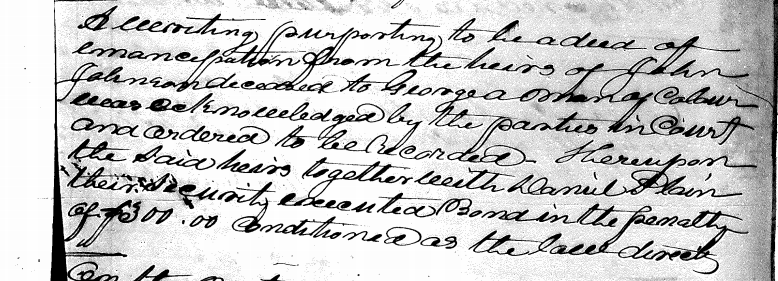 A writing purporting to be a deed of
emancipation from the heirs of John
Johnson deceased to George a man of Colour
was acknowledged by the parties in Court
and ordered to be recorded - Thereupon
the said heirs together with Daniel Plain
their security executed Bond in the penalty
of $300.00 conditioned as the law directs
On the